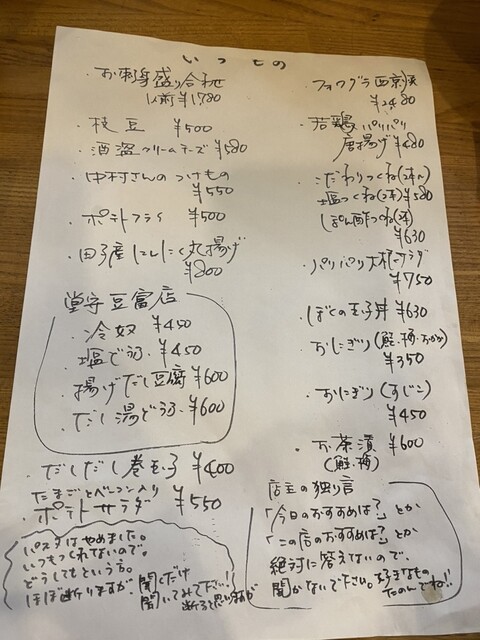 いつもの
・お刺身盛り合わせ
1人前 ¥1,780
・枝豆 ¥500
・酒盗クリームチーズ ¥580
・中村さんのつけもの
¥550
・ポテトフライ ¥500
・田子産にんにく丸揚げ
¥800
豆富店
・冷奴 ¥450
・塩どうふ ¥450
・揚げだし豆腐 ¥600
・だし湯どうふ ¥600
・だしだし巻玉子 ¥400
たまごとベーコン入り
・ポテトサラダ ¥550
パスタはやめました。
いつもつくれないので。
どうしてもという方。
ほぼ断りますが、聞くだけ
聞いてみて下さい。
断ると思いますが
フォアグラ西京漬
¥2480
・若鶏パリパリ
唐揚げ ¥680
・こだわりつくね(2本)
塩つくね(2本) ¥580
ぽん酢つくね(2本)
¥630
・パリパリ大根サラダ
¥750
・ぼくの玉子丼 ¥630
・おにぎり(鮭・梅・おかか)
¥350
・おにぎり(すじこ)
¥450
・お茶漬 ¥600
(鮭・梅)
店主の独り言
「今日のおすすめは?」とか
「この店のおすすめは?」とか
絶対に答えないので、
聞かないで下さい。好きなもの
たのんでね!!